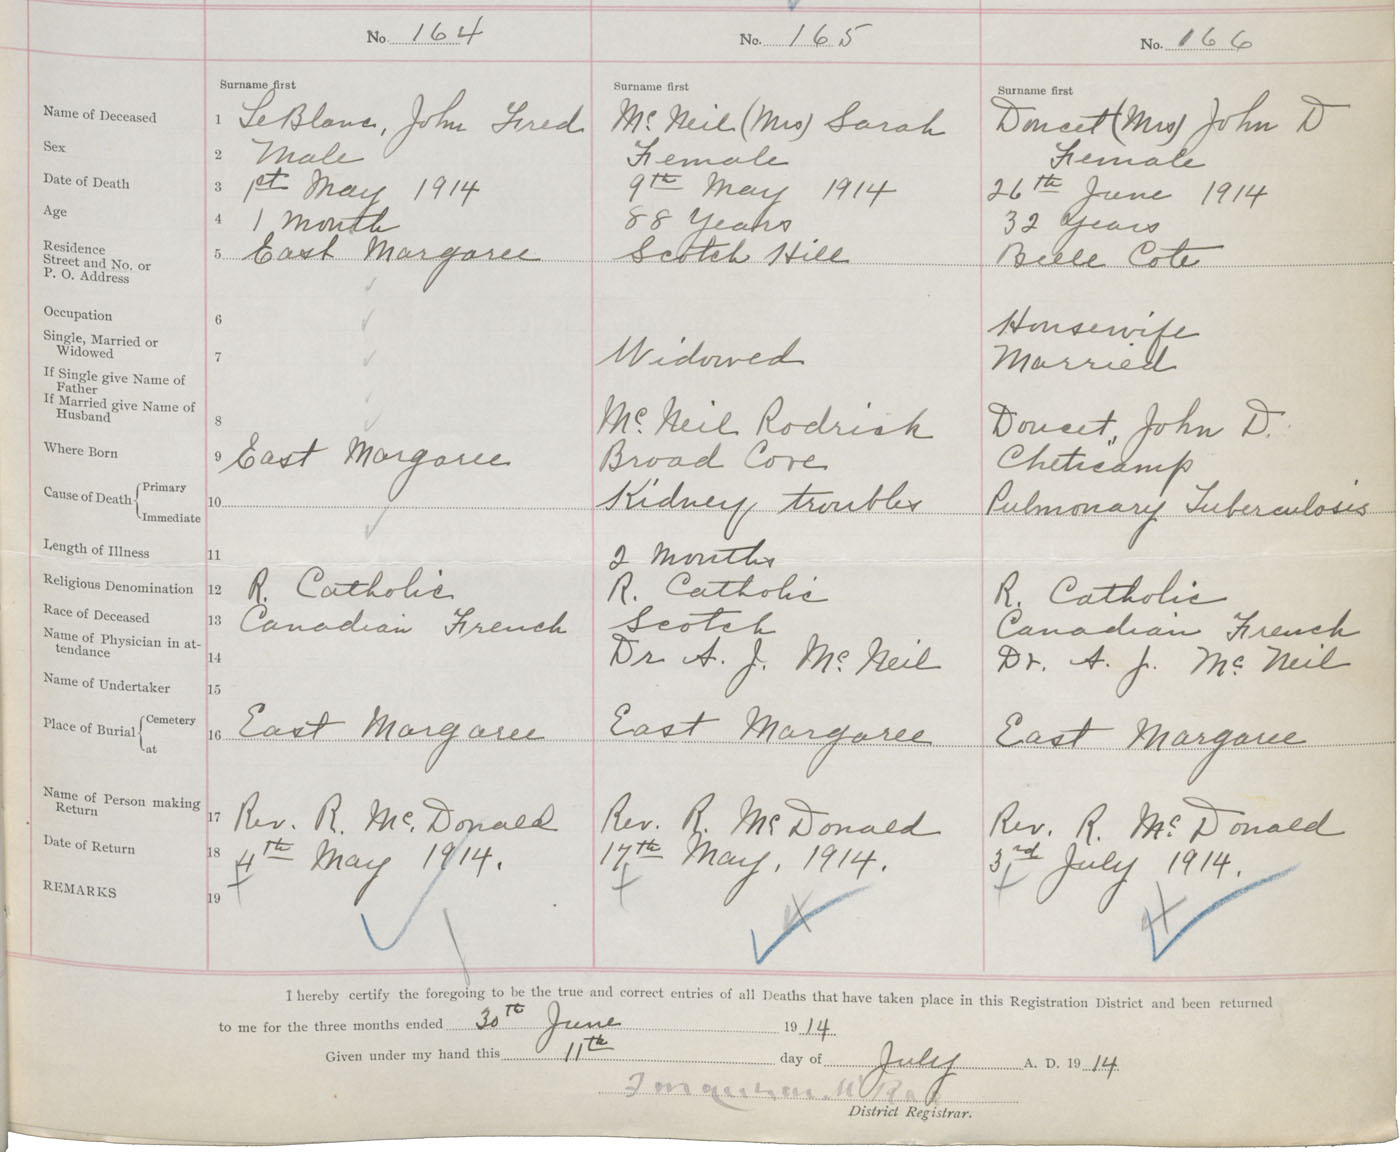 No. 164 No. 165 No. 166
Surname first Surname first Surname first
Name of Deceased 1 LeBlanc, John Fred McNeil (Mrs) Sarah Doucet (Mrs) John D
Sex 2 Male Female Female
Date of Death 3 1st May 1914 9th May 1914 26th June 1914
Age 4 1 month 88 Years 32 Years
Residence
Street and No. or 5 East Margaree Scotch Hill Belle Cote
P. O. Address
Occupation 6 Housewife
Single, Married or
Widowed 7 Widowed Married
If Single give Name of
Father
If Married give Name of
Husband 8 McNeil Rodrick Doucet, John D.
Where Born 9 East Margaree Broad Cove Cheticamp
Cause of Death { Primary
10 Kidney troubles Pulmonary Tuberculosis
Immediate
Length of Illness 11 2 months
Religious Denomination 12 R. Catholic R. Catholic R. Catholic
Race of Deceased 13 Canadian French Scotch Canadian French
Name of Physician in at-
tendance 14 Dr A. J. McNeil Dr. A. J. McNeil
Name of Undertaker 15
Place of Burial { Cemetery
16 East Margaree East Margaree East Margaree
at
Name of Person making
Return 17 Rev. R. McDonald Rev. R. McDonald Rev. R. McDonald
Date of Return 18 4th May 1914. 17th May, 1914. 3rd July 1914.
REMARKS 19
I hereby certify the foregoing to be the true and correct entries of all Deaths that have taken place in this Registration District and been returned
to me for the three months ended 30th June 1914
Given under my hand this 11th day of July A. D. 1914
District Registrar.